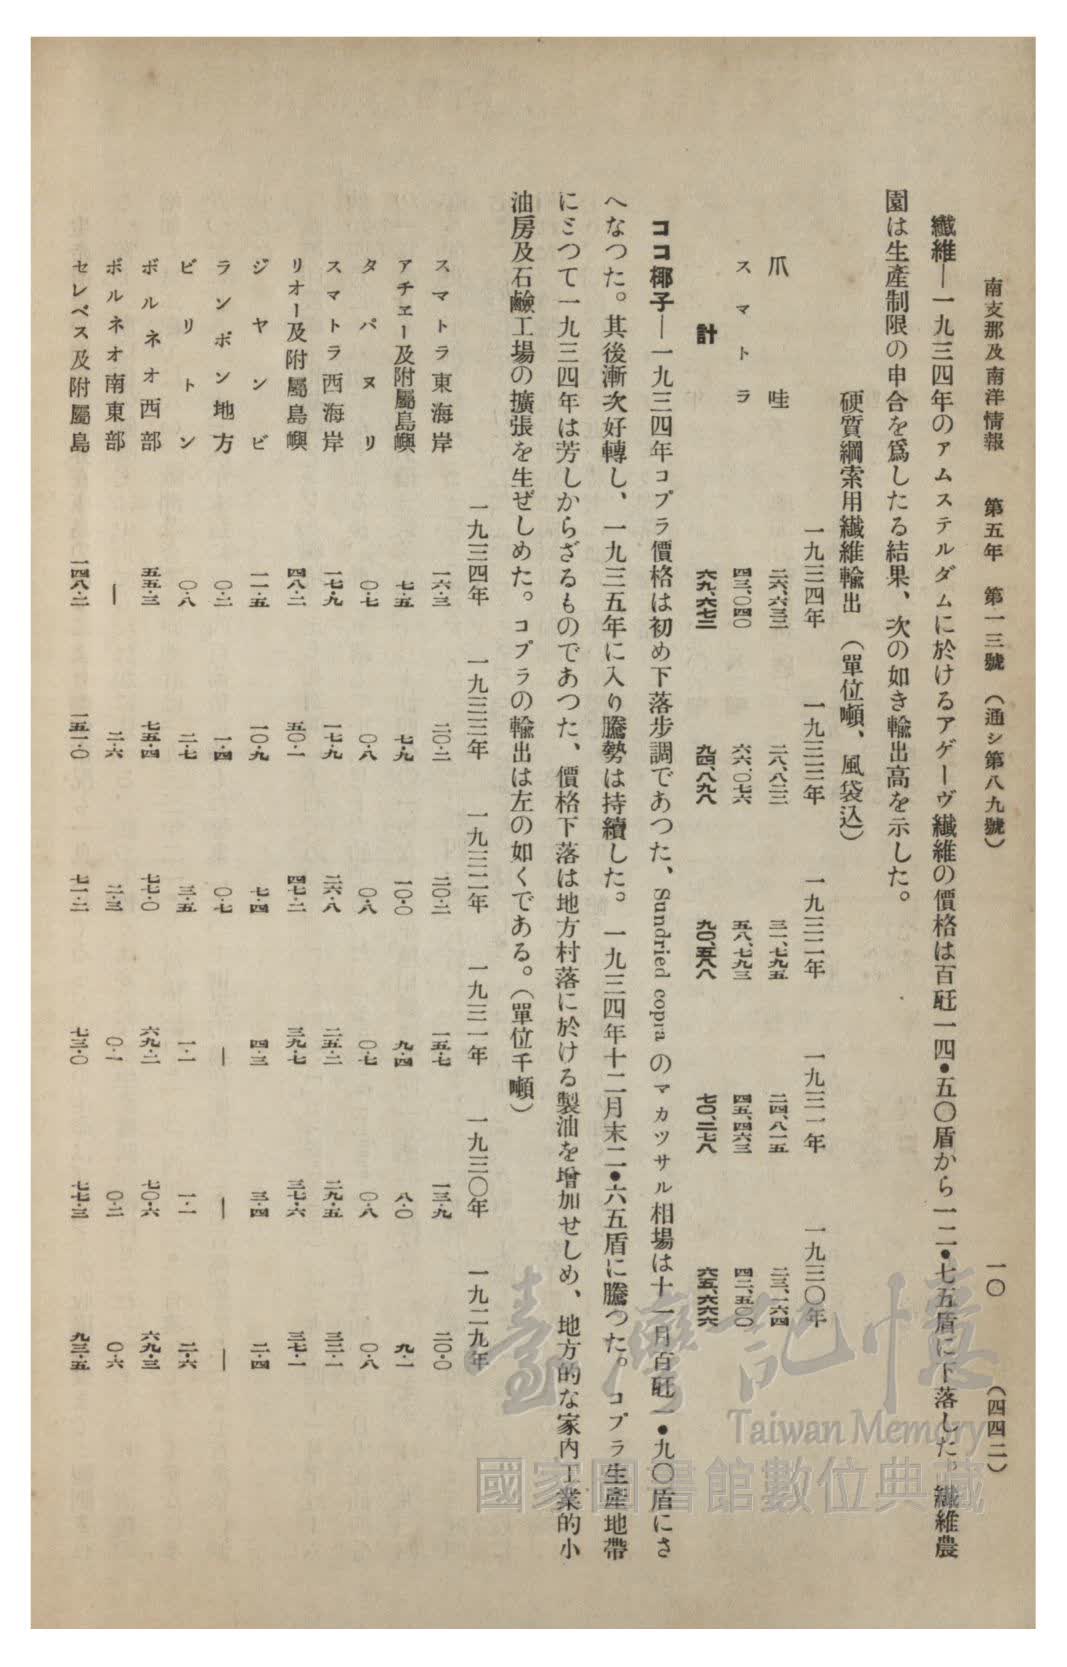 南支那及南洋情報 第五年 第一三號 (通シ第八九號) 一〇 (四四二)
纖維—一九三四年のアムステルダムに於けるアゲーヴ纖維の價格は百瓩一四•五〇盾から一二•七五盾に下落した。纖維農
園は生產制限の申合を爲したる結果、次の如き輸出高を示した。
硬質綱索用纖維輸出 (單位噸、風袋込)
一九三四年 一九三三年 一九三二年 一九三一年 一九三〇年
爪哇 二六、六三二 二八、八二二 三一、七九五 二四、八一五 二三、一六四
スマトラ 四三、〇四〇 六六、〇七六 五八、七九三 四五、四六三 四二、五〇〇
計 六九、六七二 九四、八九八 九〇、五八八 七〇、二七八 六五、六六六
ココ椰子—一九三四年コプラ價格は初め下落步調であつた、Sundried copra のマカツサル相場は十一月百瓩一•九〇盾にさ
へなつた。其後漸次好轉し、一九三五年に入り騰勢は持續した。一九三四年十二月末二•六五盾に騰つた。コプラ生產地帶
にとつて一九三四年は芳しからざるものであつた、價格下落は地方村落に於ける製油を增加せしめ、地方的な家內工業的小
油房及石鹼工場の擴張を生ぜしめた。コプラの輸出は左の如くである。(單位千噸)
一九三四年 一九三三年 一九三二年 一九三一年 一九三〇年 一九二九年
スマトラ東海岸 一六・三 二〇・二 二〇・二 一五・七 一三・九 二〇・〇
アチエー及附屬島嶼 七・五 七・九 一〇・〇 九・四 八・〇 九・一
タパヌリ 〇・七 〇・八 〇・八 〇・七 〇・八 〇・八
スマトラ西海岸 一七・九 一七・九 二六・八 二五・二 二九・五 三二・一
リオー及附屬島嶼 四八・二 五〇・一 四七・二 三九・七 三七・六 三七・一
ジヤンビ 一一・五 一〇・九 七・四 四・三 三・四 二・四
ランポン地方 〇・二 一・四 〇・七 — — —
ビリトン 〇・八 二・七 三・五 一・一 一・一 二・六
ボルネオ西部 五五・三 七五・四 七七・〇 六九・二 七〇・六 六九・三
ボルネオ南東部 — 二・六 二・三 〇・一 〇・二 〇・六
セレベス及附屬島 一四八・二 一五一・〇 七一・二 七三・〇 七七・三 九三・五
臺灣記憶
Taiwan Memory
國家圖書館數位典藏